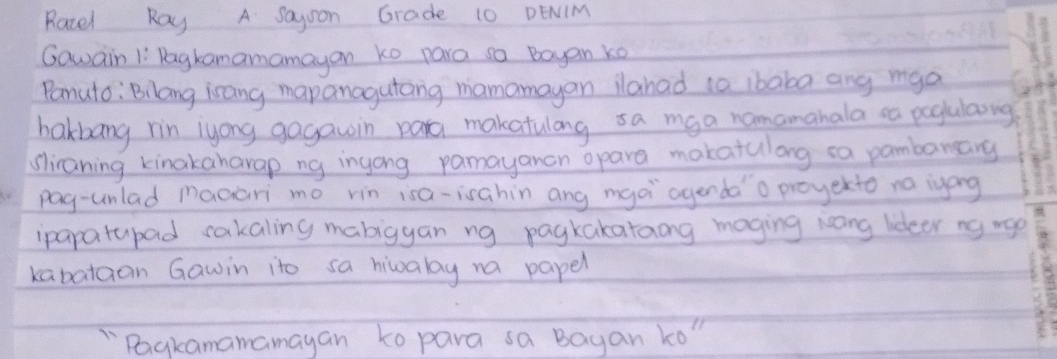 Razel Ray A. Sayson Grade 10 DENIM
Gawain 1: Pagkamamamayan ko para sa Bayan ko
Panuto: Bilang isang mapanagutang mamamayan ilahad sa ibaba ang mga
hakbang rin iyong gagawin para makatulong sa mga namamahala sa paglulasng
sliraning kinakaharap ng inyong pamayanan opara makatulong sa pambansang
pag-unlad Maaari mo rin isa-isahin ang mga "agenda" o proyekto na iyong
ipapatupad sakaling mabigyan ng pagkakataong maging isang lideer ng mga
kabataan Gawin ito sa hiwalay na papel
"Pagkamamamayan ko para sa Bayan ko"